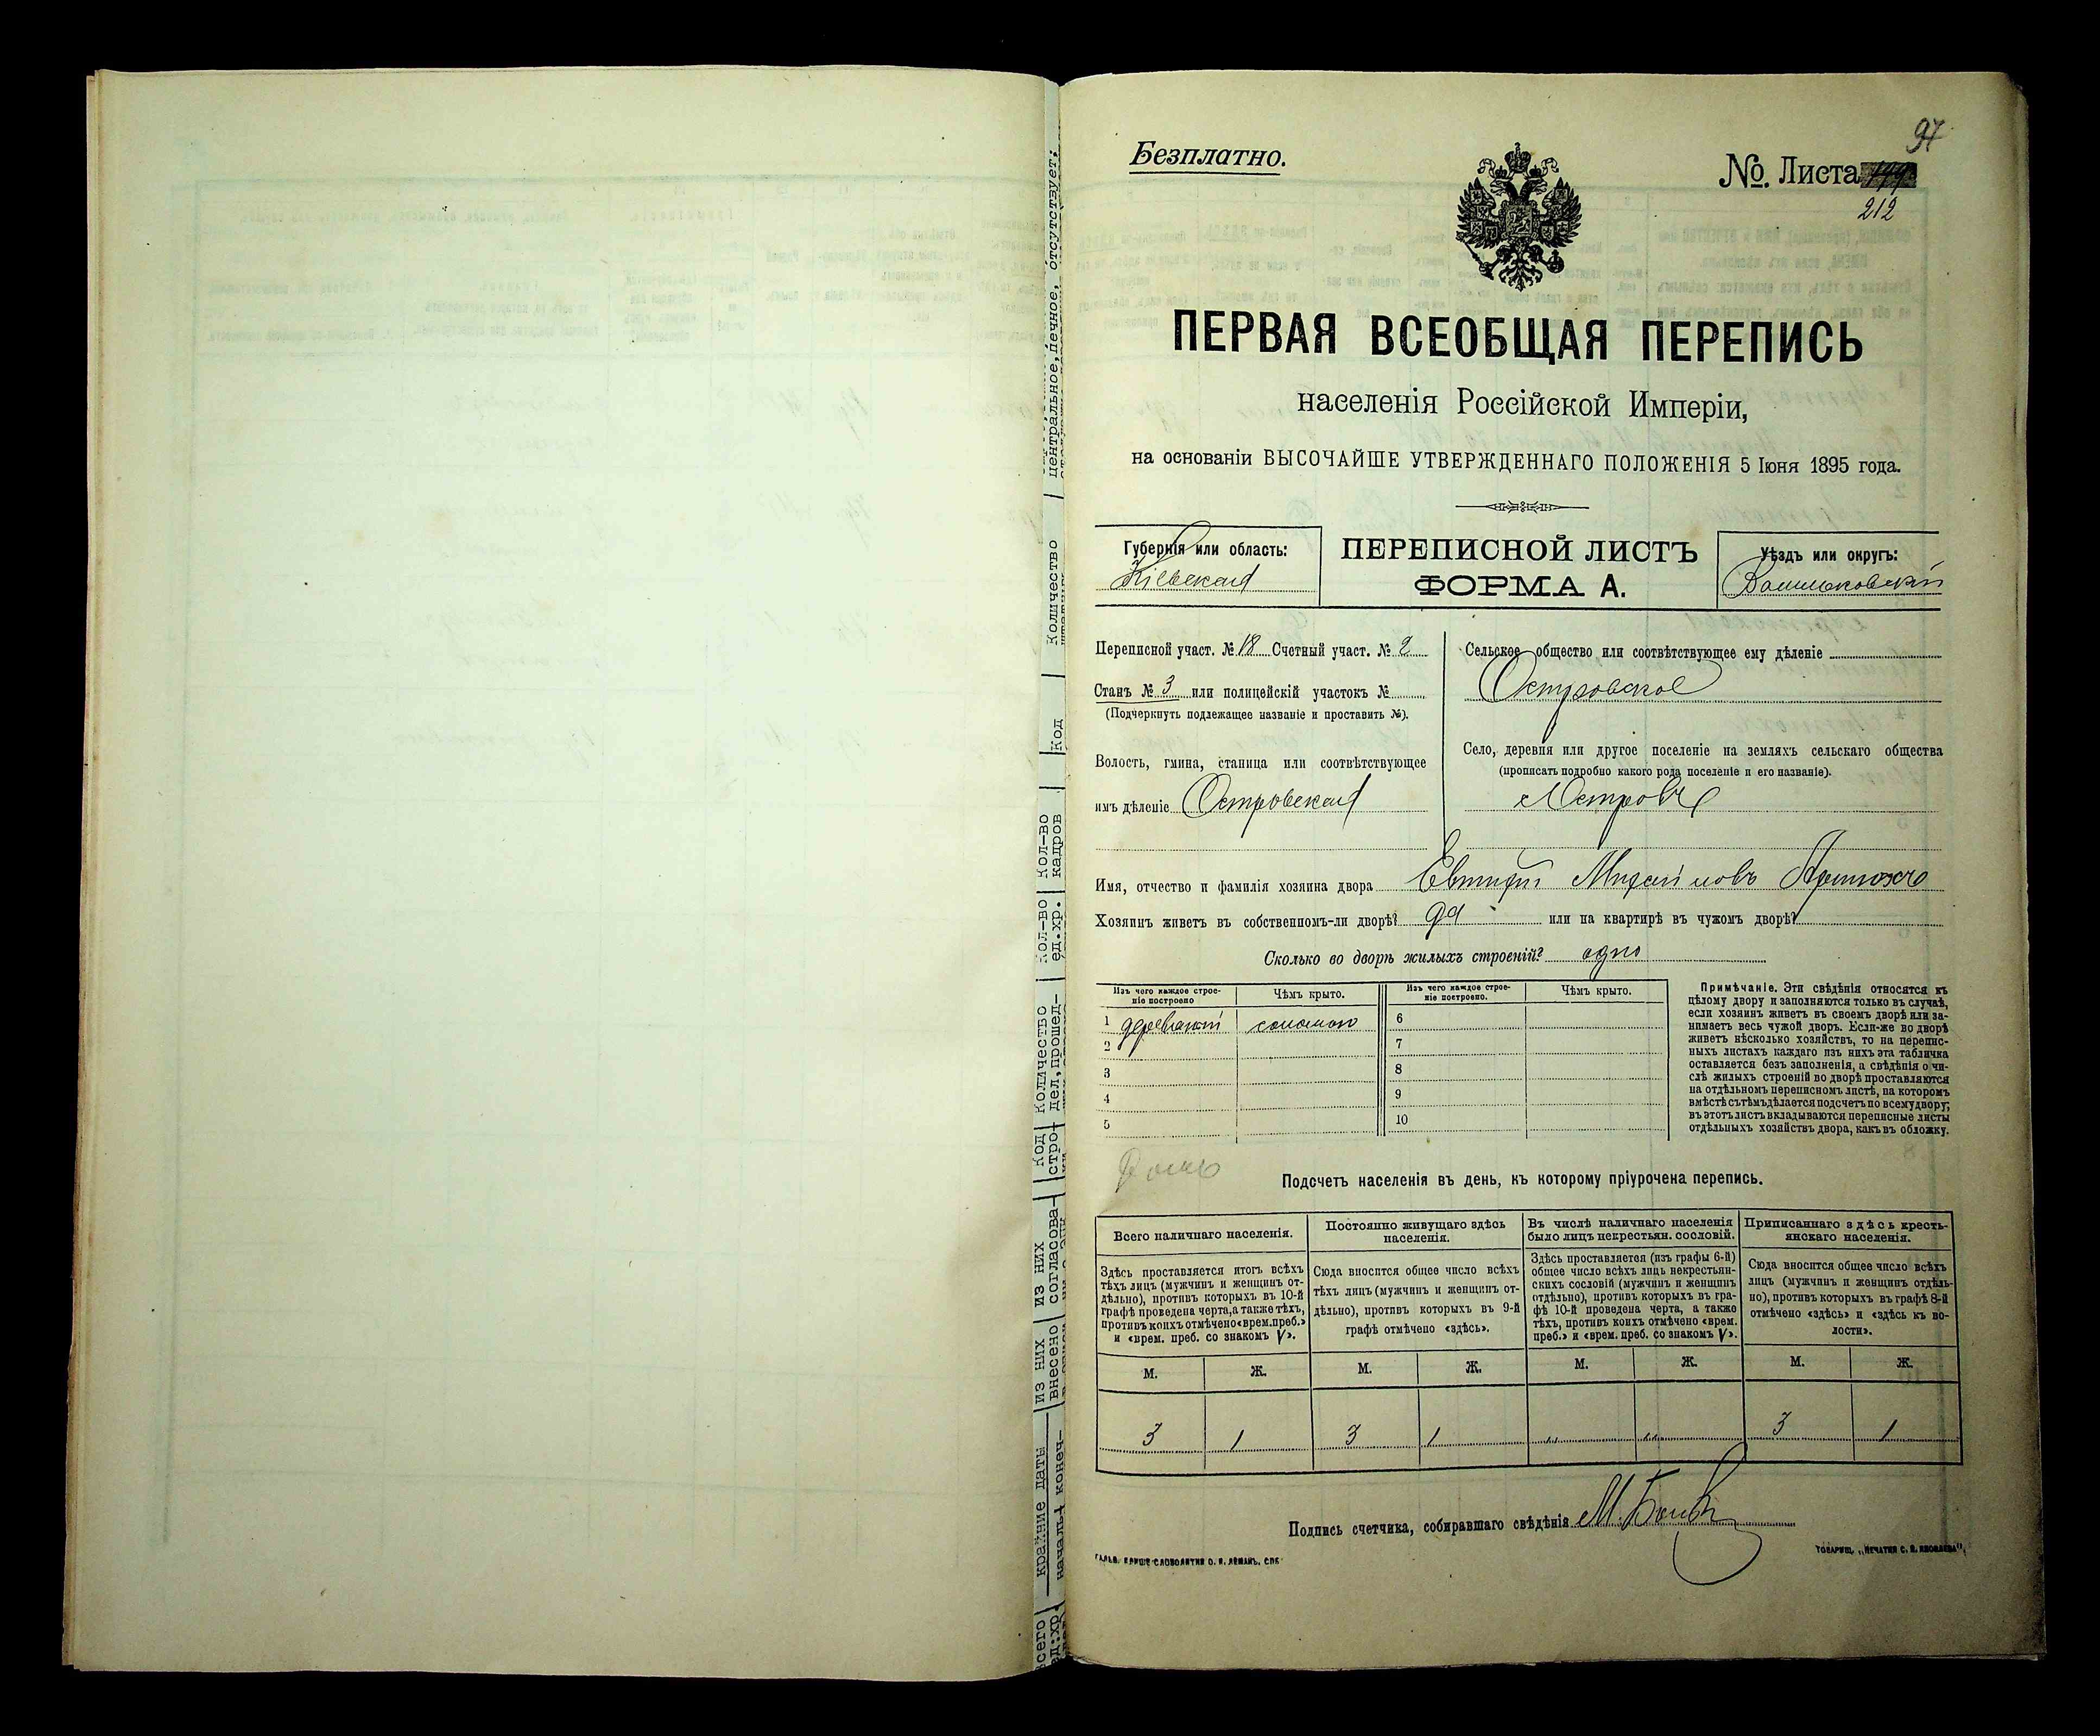 97
Безплатно.
№. Листа 199
212
ПЕРВАЯ ВСЕОБЩАЯ ПЕРЕПИСЬ
населенія Россійской Имперіи,
на основаніи ВЫСОЧАЙШЕ УТВЕРЖДЕННАГО ПОЛОЖЕНІЯ 5 Іюня 1895 года.
Губернія или область:
Кіевская
ПЕРЕПИСНОЙ ЛИСТЪ
ФОРМА А.
Уѣздъ или округъ:
Васильковскій
Переписной участ. № 18 Счетный участ. № 2
Станъ № 3 или полицейскій участокъ №
(Подчеркнуть подлежащее названіе и проставить №).
Волость, гмина, станица или соотвѣтствующее
имъ дѣленіе Островская
Сельское общество или соотвѣтствующее ему дѣленіе
Островское
Село, деревня или другое поселеніе на земляхъ сельскаго общества
(прописать подробно какого рода поселеніе и его названіе).
с Островъ
Имя, отчество и фамилія хозяина двора Евтифій Михайловъ
Хозяинъ живетъ въ собственномъ-ли дворѣ? да или на квартирѣ въ чужомъ дворѣ?
Сколько во дворѣ жилыхъ строеній? одно
Изъ чего каждое строе-
ніе построено
Чѣмъ крыто.
Изъ чего каждое строе-
ніе построено.
Чѣмъ крыто.
1 соломою
2
3
4
5
6
7
8
9
10
Примѣчаніе. Эти свѣдѣнія относятся къ
цѣлому двору и заполняются только въ случаѣ,
если хозяинъ живетъ въ своемъ дворѣ или за-
нимаетъ весь чужой дворъ. Если-же во дворѣ
живетъ нѣсколько хозяйствъ, то на перепис-
ныхъ листахъ каждаго изъ нихъ эта табличка
оставляется безъ заполненія, а свѣдѣнія о чи-
слѣ жилыхъ строеній во дворѣ проставляются
на отдѣльномъ переписномъ листѣ, на которомъ
вмѣстѣ съ тѣмъ дѣлается подсчетъ по всему двору;
въ этотъ листъ вкладываются переписные листы
отдѣльныхъ хозяйствъ двора, какъ въ обложку.
Подсчетъ населенія въ день, къ которому пріурочена перепись.
Всего наличнаго населенія.
Здѣсь проставляется итогъ всѣхъ
тѣхъ лицъ (мужчинъ и женщинъ от-
дѣльно), противъ которыхъ въ 10-й
графѣ проведена черта, а также тѣхъ,
противъ коихъ отмѣчено «врем. преб.»
и «врем. преб. со знакомъ V».
Постоянно живущаго здѣсь
населенія.
Сюда вносится общее число всѣхъ
тѣхъ лицъ (мужчинъ и женщинъ от-
дѣльно), противъ которыхъ въ 9-й
графѣ отмѣчено «здѣсь».
Въ числѣ наличнаго населенія
было лицъ некрестьян. сословій.
Здѣсь проставляется (изъ графы 6-й)
общее число всѣхъ лицъ некрестьян-
скихъ сословій (мужчинъ и женщинъ
отдѣльно), противъ которыхъ въ гра-
фѣ 10-й проведена черта, а также
тѣхъ, противъ коихъ отмѣчено «врем.
преб.» и «врем. преб. со знакомъ V».
Приписаннаго здѣсь кресть-
янскаго населенія.
Сюда вносится общее число всѣхъ
лицъ (мужчинъ и женщинъ отдѣль-
но), противъ которыхъ въ графѣ 8-й
отмѣчено «здѣсь» и «здѣсь къ во-
лости».
М. Ж. М. Ж. М. Ж. М. Ж.
3 1 3 1 „ „ 3 1
Подпись счетчика, собиравшаго свѣдѣнія
центральное, печное, отсутствует;
Количество
Код
Кол-во
кадров
Кол-во
ед.хр.
Количество
дел, прошед-
Код
стро-
из них
согласова-
из них
внесено
крайние даты
началь- конеч-
всего
ед.хр.